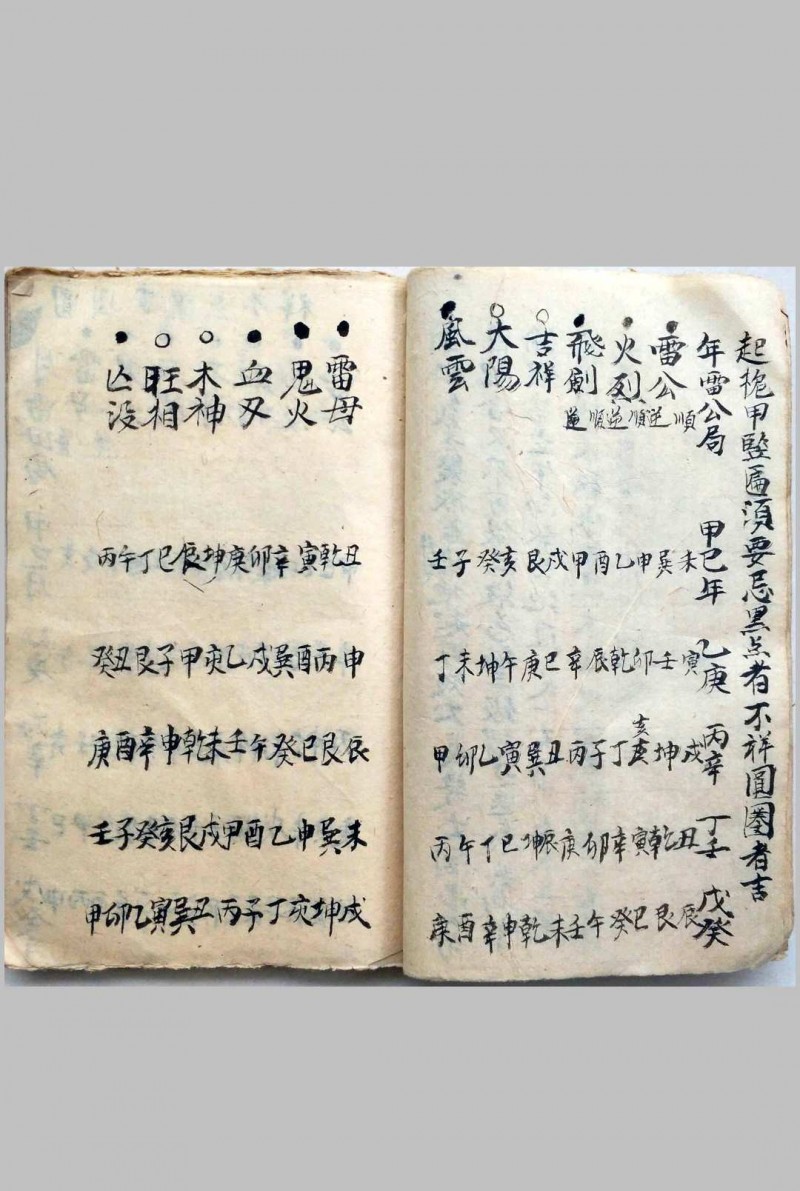 起桅甲竪匾須要忌黑点者不祥圓圈者吉
年雷公局
雷公 順逆
火烈 順逆
飛劍 順逆
吉祥
太陽
風雲
甲巳年 未巽申乙酉甲戌艮亥癸子壬
乙庚 寅壬卯乾辰辛巳庚午坤未丁
丙辛 戌坤亥丁子丙丑巽寅乙卯甲
丁壬 丑乾寅辛卯庚辰坤巳丁午丙
戊癸 辰艮巳癸午壬未乾申辛酉庚
雷母
鬼火
血刃
木神
旺相
亾没
丑乾寅辛卯庚坤辰巳丁午丙
申丙酉巽戌乙亥甲子艮丑癸
辰艮巳癸午壬未乾申辛酉庚
未巽申乙酉甲戌艮亥癸子壬
戌坤亥丁子丙丑巽寅乙卯甲